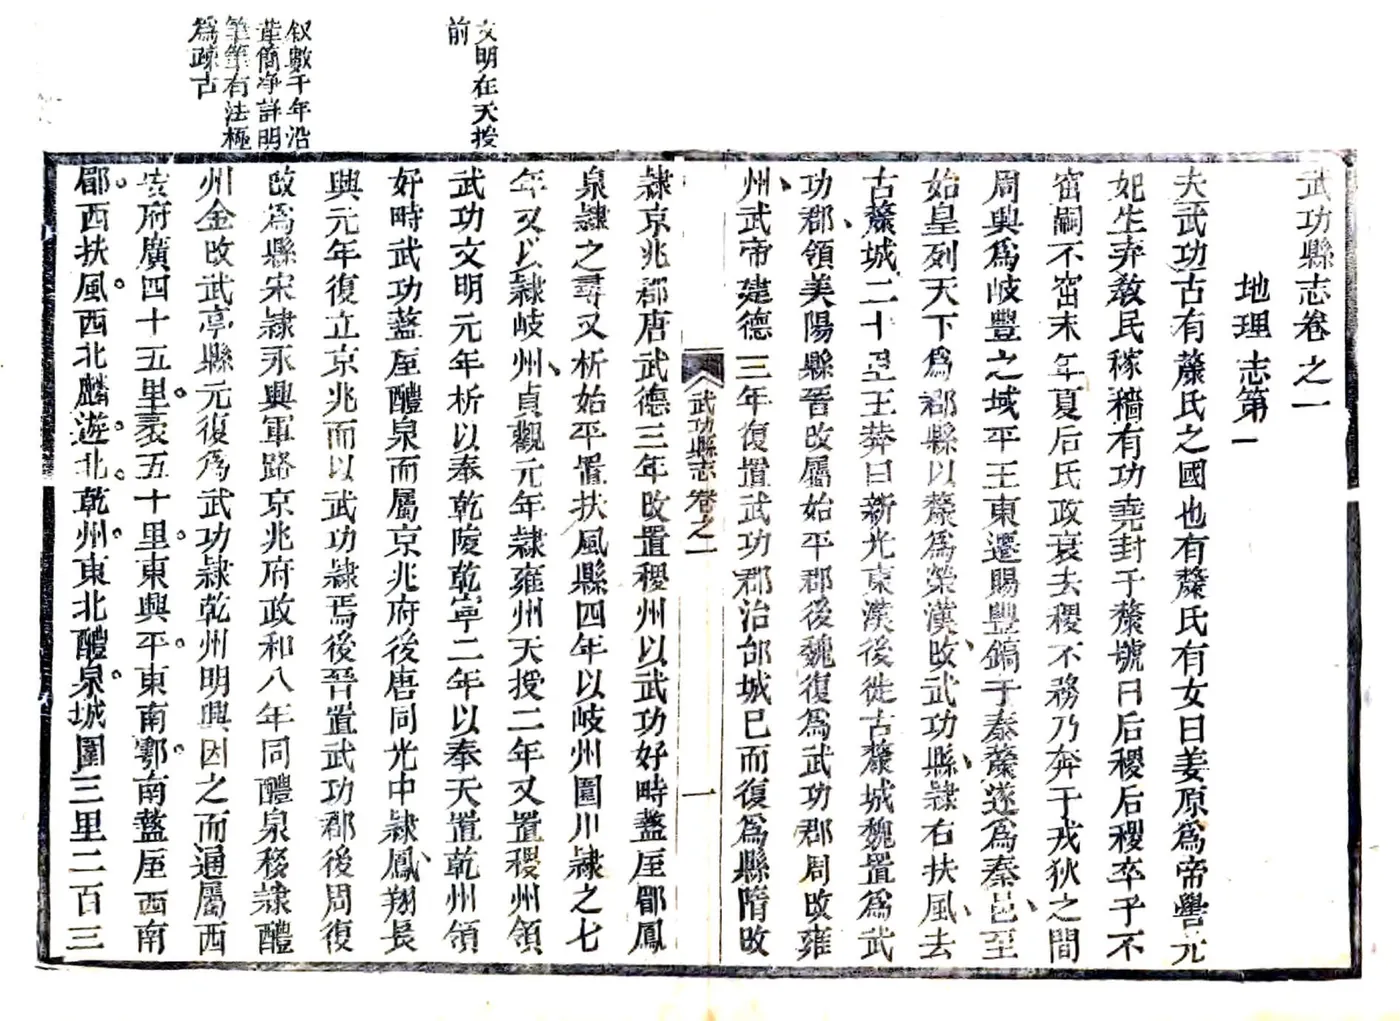 武功縣志卷之一
地理志第一
夫武功古有斄氏之國也有斄氏有女曰姜原爲帝嚳元
妃生弃教民稼穡有功堯封于斄號曰后稷后稷卒子不
窋嗣不窋末年夏后氏政衰去稷不務乃奔于戎狄之間
周興爲岐豐之域平王東遷賜豐鎬于秦斄遂爲秦邑至
始皇列天下爲郡縣以斄爲
漢改武功縣隸右扶風去
古斄城二十里王莽曰新光東漢後徙古斄城魏置爲武
功郡領美陽縣晉改屬始平郡後魏復爲武功郡周改雍
州武帝建德三年復置武功郡治郃城已而復爲縣隋改
武功縣志卷之一
一
隸京兆郡唐武德三年改置稷州以武功好畤盩厔郿鳳
泉隸之尋又析始平置扶風縣四年以岐州圍川隸之七
年又以隸岐州貞觀元年隸雍州天授二年又置稷州領
武功文明元年析以奉乾陵乾寧二年以奉天置乾州領
好畤武功盩厔醴泉而屬京兆府後唐同光中隸鳳翔長
興元年復立京兆而以武功隸焉後晉置武功郡後周復
改爲縣宋隸永興軍路京兆府政和八年同醴泉移隸醴
州金改武亭縣元復爲武功隸乾州明興因之而通屬西
安府廣四十五里袤五十里東興平東南鄠南盩厔西南
郿西扶風西北麟遊北乾州東北醴泉城圍三里二百三
文明在天授
前
叙數千年沿
革簡净詳明
筆筆有法極
爲疎古